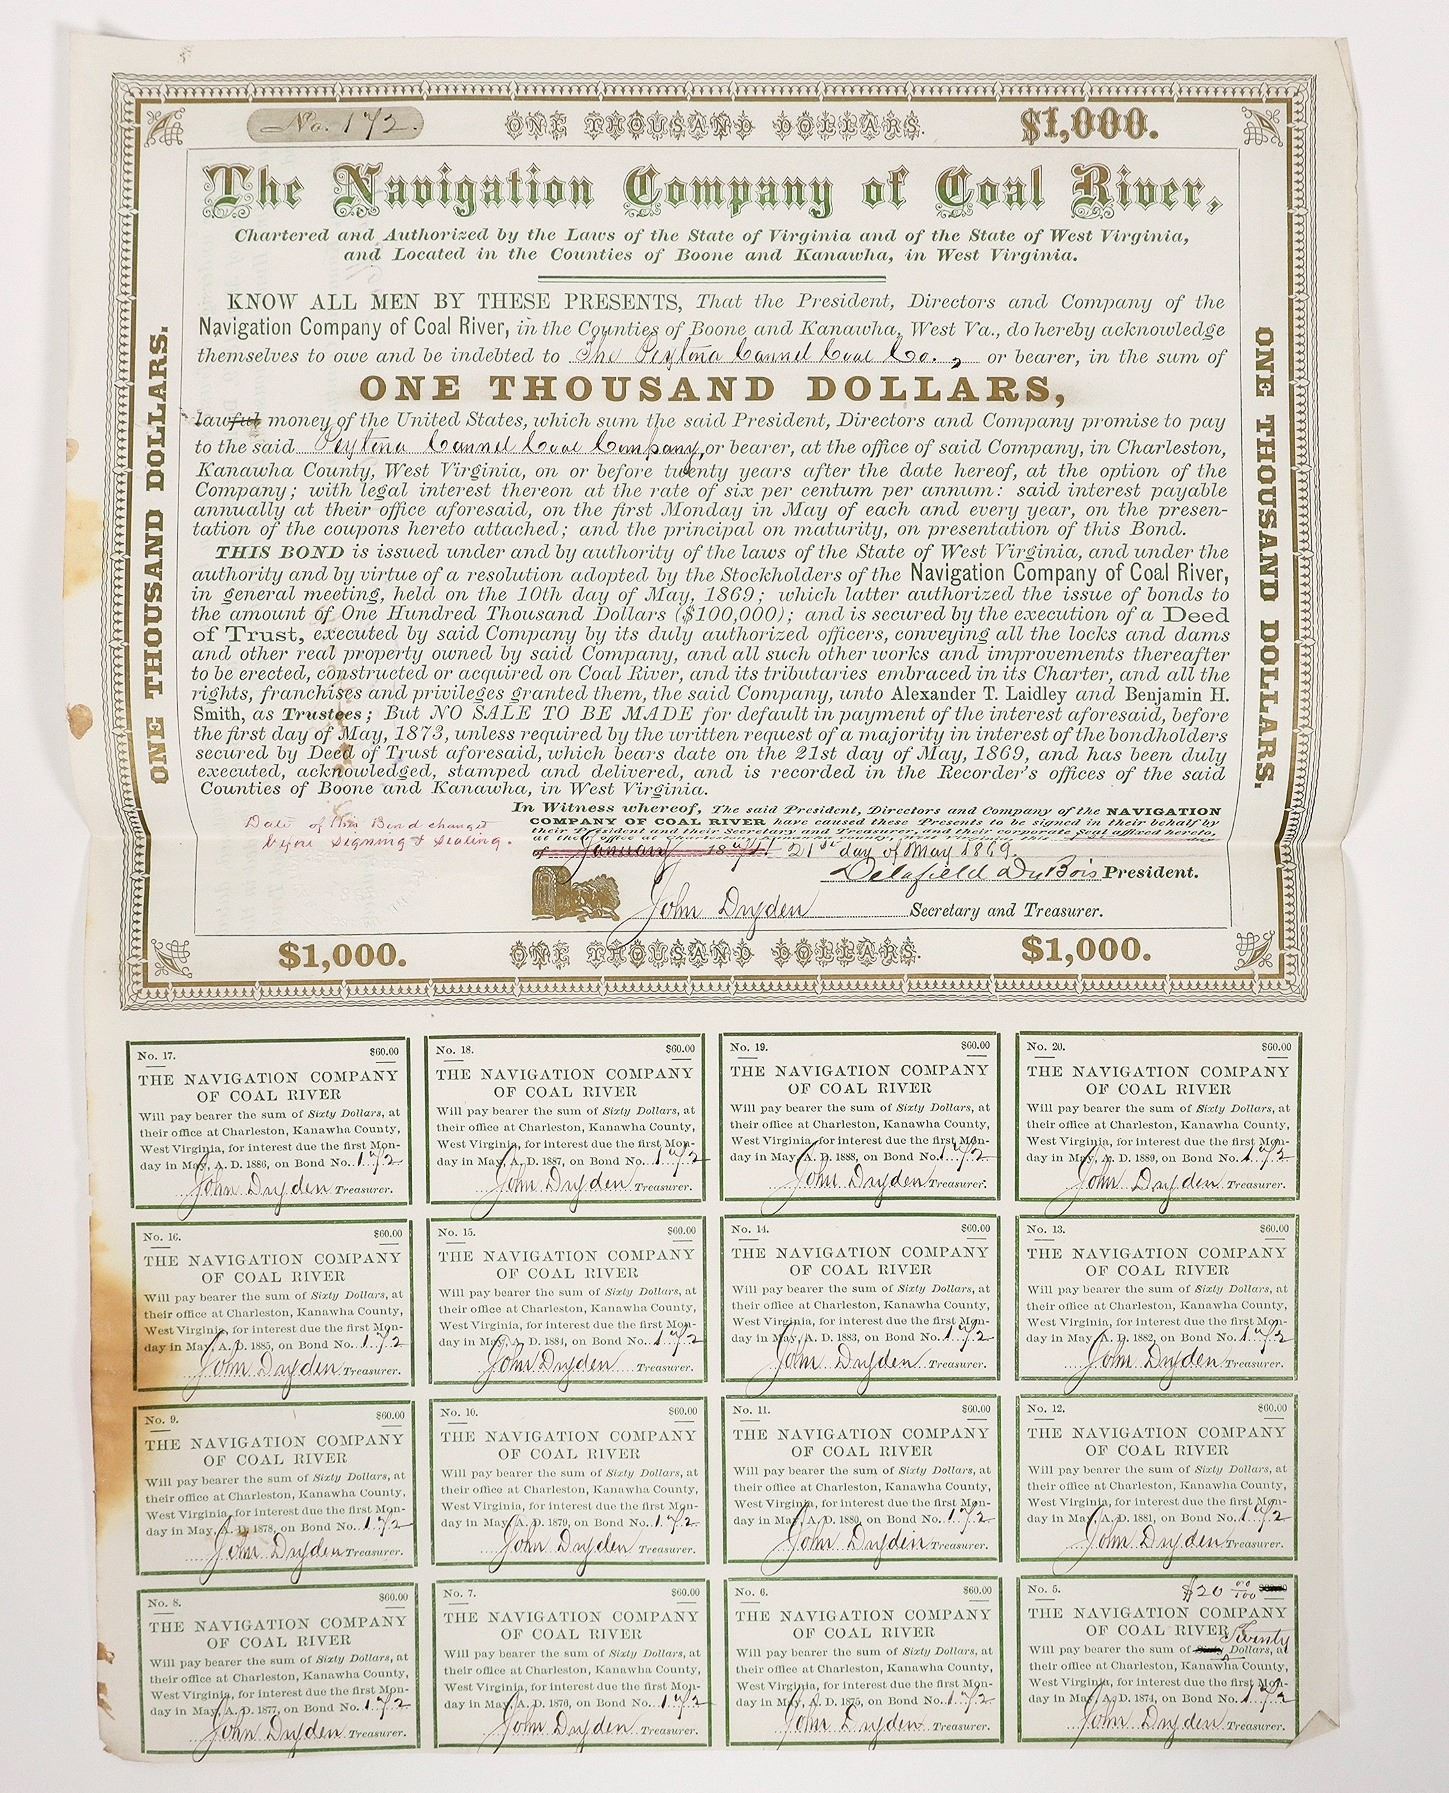 No. 172.
ONE THOUSAND DOLLARS.
$1,000.
The Navigation Company of Coal River,
Chartered and Authorized by the Laws of the State of Virginia and of the State of West Virginia,
and Located in the Counties of Boone and Kanawha, in West Virginia.
KNOW ALL MEN BY THESE PRESENTS, That the President, Directors and Company of the
Navigation Company of Coal River, in the Counties of Boone and Kanawha, West Va., do hereby acknowledge
themselves to owe and be indebted to The Peytona Cannel Coal Co., or bearer, in the sum of
ONE THOUSAND DOLLARS,
lawful money of the United States, which sum the said President, Directors and Company promise to pay
to the said Peytona Cannel Coal Company, or bearer, at the office of said Company, in Charleston,
Kanawha County, West Virginia, on or before twenty years after the date hereof, at the option of the
Company; with legal interest thereon at the rate of six per centum per annum: said interest payable
annually at their office aforesaid, on the first Monday in May of each and every year, on the presen-
tation of the coupons hereto attached; and the principal on maturity, on presentation of this Bond.
THIS BOND is issued under and by authority of the laws of the State of West Virginia, and under the
authority and by virtue of a resolution adopted by the Stockholders of the Navigation Company of Coal River,
in general meeting, held on the 10th day of May, 1869; which latter authorized the issue of bonds to
the amount of One Hundred Thousand Dollars ($100,000); and is secured by the execution of a Deed
of Trust, executed by said Company by its duly authorized officers, conveying all the locks and dams
and other real property owned by said Company, and all such other works and improvements thereafter
to be erected, constructed or acquired on Coal River, and its tributaries embraced in its Charter, and all the
rights, franchises and privileges granted them, the said Company, unto Alexander T. Laidley and Benjamin H.
Smith, as Trustees; But NO SALE TO BE MADE for default in payment of the interest aforesaid, before
the first day of May, 1873, unless required by the written request of a majority in interest of the bondholders
secured by Deed of Trust aforesaid, which bears date on the 21st day of May, 1869, and has been duly
executed, acknowledged, stamped and delivered, and is recorded in the Recorder's offices of the said
Counties of Boone and Kanawha, in West Virginia.
In Witness whereof, The said President, Directors and Company of the NAVIGATION
COMPANY OF COAL RIVER have caused these Presents to be signed in their behalf by
their President and their Secretary and Treasurer, and their corporate Seal affixed hereto,
at the office at Charleston, Kanawha County, West Virginia, this
of January 1871 21st day of May 1869.
Date of this Bond changed
before Signing & Sealing.
Delafield DuBois President.
John Dryden Secretary and Treasurer.
$1,000.
ONE THOUSAND DOLLARS.
$1,000.
ONE THOUSAND DOLLARS.
ONE THOUSAND DOLLARS.
No. 17. $60.00
THE NAVIGATION COMPANY
OF COAL RIVER
Will pay bearer the sum of Sixty Dollars, at
their office at Charleston, Kanawha County,
West Virginia, for interest due the first Mon-
day in May, A. D. 1886, on Bond No. 172
John Dryden Treasurer.
No. 18. $60.00
THE NAVIGATION COMPANY
OF COAL RIVER
Will pay bearer the sum of Sixty Dollars, at
their office at Charleston, Kanawha County,
West Virginia, for interest due the first Mon-
day in May, A. D. 1887, on Bond No. 172
John Dryden Treasurer.
No. 19. $60.00
THE NAVIGATION COMPANY
OF COAL RIVER
Will pay bearer the sum of Sixty Dollars, at
their office at Charleston, Kanawha County,
West Virginia, for interest due the first Mon-
day in May, A. D. 1888, on Bond No. 172
John Dryden Treasurer.
No. 20. $60.00
THE NAVIGATION COMPANY
OF COAL RIVER
Will pay bearer the sum of Sixty Dollars, at
their office at Charleston, Kanawha County,
West Virginia, for interest due the first Mon-
day in May, A. D. 1889, on Bond No. 172
John Dryden Treasurer.
No. 16. $60.00
THE NAVIGATION COMPANY
OF COAL RIVER
Will pay bearer the sum of Sixty Dollars, at
their office at Charleston, Kanawha County,
West Virginia, for interest due the first Mon-
day in May, A. D. 1885, on Bond No. 172
John Dryden Treasurer.
No. 15. $60.00
THE NAVIGATION COMPANY
OF COAL RIVER
Will pay bearer the sum of Sixty Dollars, at
their office at Charleston, Kanawha County,
West Virginia, for interest due the first Mon-
day in May, A. D. 1884, on Bond No. 172
John Dryden Treasurer.
No. 14. $60.00
THE NAVIGATION COMPANY
OF COAL RIVER
Will pay bearer the sum of Sixty Dollars, at
their office at Charleston, Kanawha County,
West Virginia, for interest due the first Mon-
day in May, A. D. 1883, on Bond No. 172
John Dryden Treasurer.
No. 13. $60.00
THE NAVIGATION COMPANY
OF COAL RIVER
Will pay bearer the sum of Sixty Dollars, at
their office at Charleston, Kanawha County,
West Virginia, for interest due the first Mon-
day in May, A. D. 1882, on Bond No. 172
John Dryden Treasurer.
No. 9. $60.00
THE NAVIGATION COMPANY
OF COAL RIVER
Will pay bearer the sum of Sixty Dollars, at
their office at Charleston, Kanawha County,
West Virginia, for interest due the first Mon-
day in May, A. D. 1878, on Bond No. 172
John Dryden Treasurer.
No. 10. $60.00
THE NAVIGATION COMPANY
OF COAL RIVER
Will pay bearer the sum of Sixty Dollars, at
their office at Charleston, Kanawha County,
West Virginia, for interest due the first Mon-
day in May, A. D. 1879, on Bond No. 172
John Dryden Treasurer.
No. 11. $60.00
THE NAVIGATION COMPANY
OF COAL RIVER
Will pay bearer the sum of Sixty Dollars, at
their office at Charleston, Kanawha County,
West Virginia, for interest due the first Mon-
day in May, A. D. 1880, on Bond No. 172
John Dryden Treasurer.
No. 12. $60.00
THE NAVIGATION COMPANY
OF COAL RIVER
Will pay bearer the sum of Sixty Dollars, at
their office at Charleston, Kanawha County,
West Virginia, for interest due the first Mon-
day in May, A. D. 1881, on Bond No. 172
John Dryden Treasurer.
No. 8. $60.00
THE NAVIGATION COMPANY
OF COAL RIVER
Will pay bearer the sum of Sixty Dollars, at
their office at Charleston, Kanawha County,
West Virginia, for interest due the first Mon-
day in May, A. D. 1877, on Bond No. 172
John Dryden Treasurer.
No. 7. $60.00
THE NAVIGATION COMPANY
OF COAL RIVER
Will pay bearer the sum of Sixty Dollars, at
their office at Charleston, Kanawha County,
West Virginia, for interest due the first Mon-
day in May, A. D. 1876, on Bond No. 172
John Dryden Treasurer.
No. 6. $60.00
THE NAVIGATION COMPANY
OF COAL RIVER
Will pay bearer the sum of Sixty Dollars, at
their office at Charleston, Kanawha County,
West Virginia, for interest due the first Mon-
day in May, A. D. 1875, on Bond No. 172
John Dryden Treasurer.
No. 5. $20 00/100
THE NAVIGATION COMPANY
OF COAL RIVER
Will pay bearer the sum of Sixty Twenty Dollars, at
their office at Charleston, Kanawha County,
West Virginia, for interest due the first Mon-
day in May, A. D. 1874, on Bond No. 172
John Dryden Treasurer.